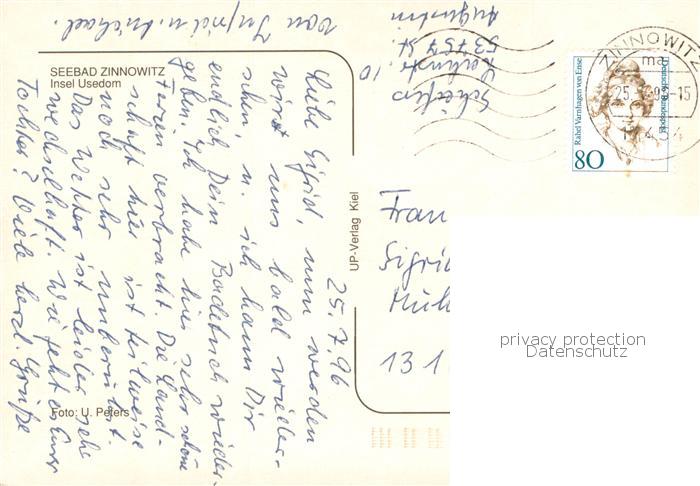 SEEBAD ZINNOWITZ
Insel Usedom
25.7.96
Liebe Sigrid, nun werden
wirst uns bald wieder-
sehen u. ich kann Dir
endlich Dein Badetuch wieder-
geben. Ich habe hier sehr schöne
Ferien verbracht. Die Land-
schaft hier ist teilweise
noch sehr unberührt.
Das Wetter ist leider sehr
wechselhaft. Wie geht es Eurer
Tochter? Viele herzl. Grüße
von Ingrid u. Michael.
Foto: U. Peters
UP-Verlag Kiel
10
53757 St.
Augustin
ZINNOWITZ
25.7.96-15
17454
Deutsche Bundespost
Rahel Varnhagen von Ense
80
Frau
Sigrid
Müh
131
privacy protection
Datenschutz